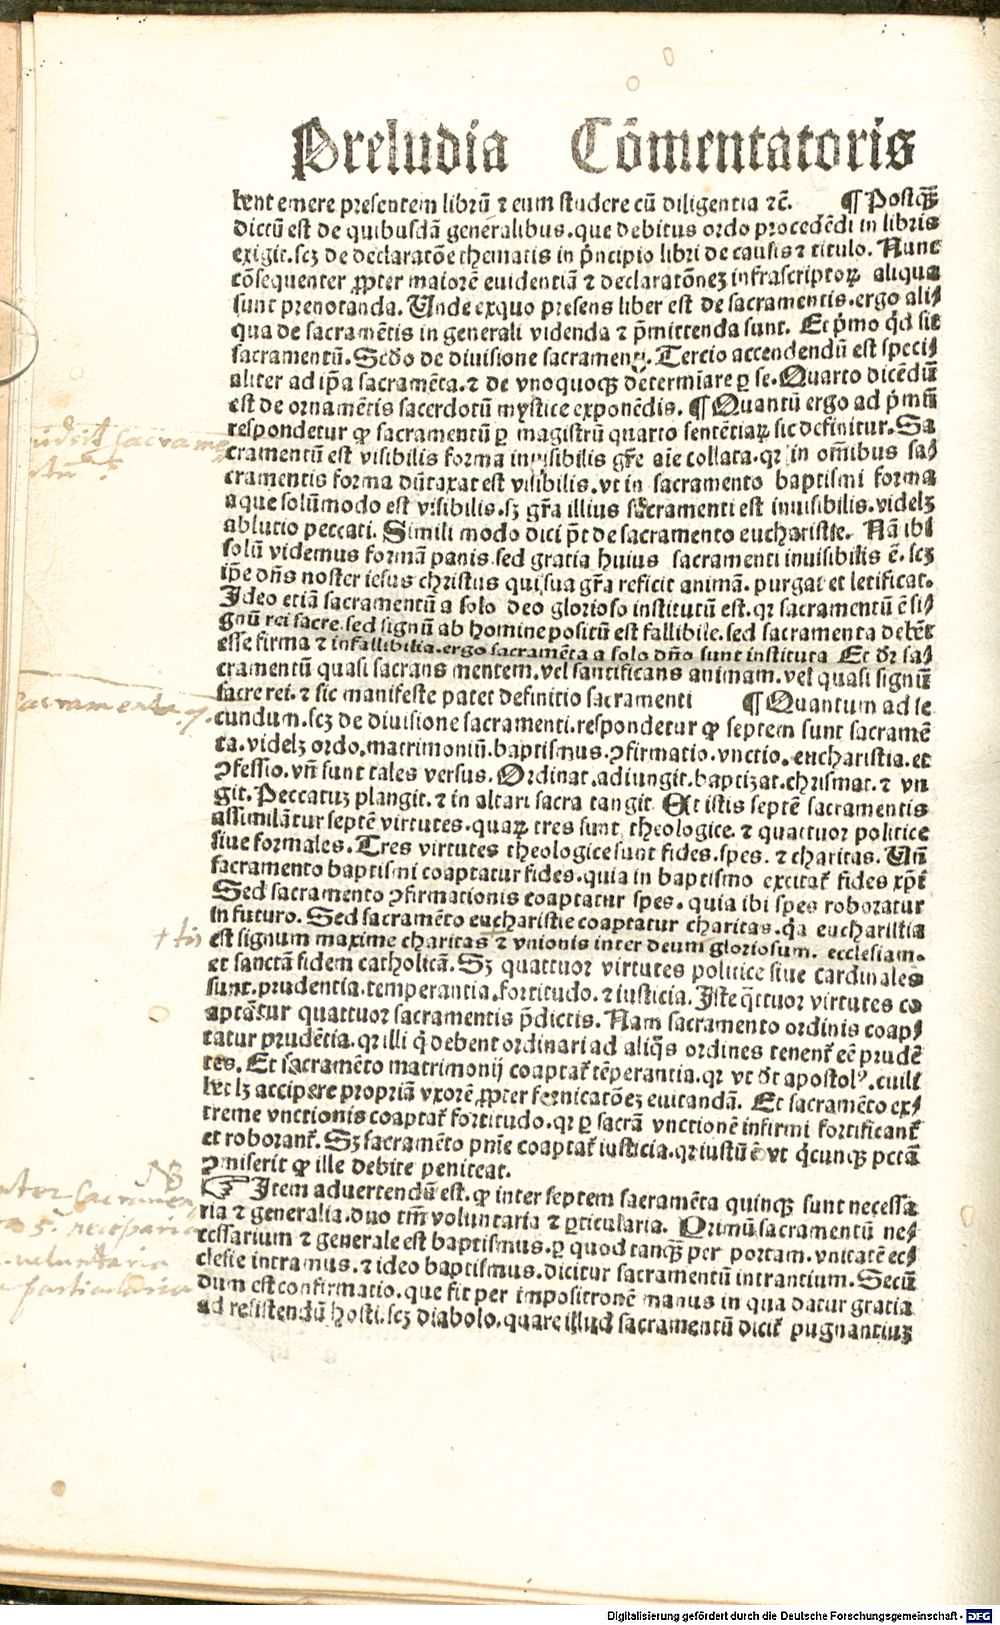 Preludia Cõmentatoris
bent emere presentem librũ ⁊ eum studere cũ diligentia ⁊c̃. ¶ Postqᷓꝫ
dictũ est de quibusdã generalibus. que debitus ordo procedẽdi in libris
exigit. scꝫ de declaratõe thematis in p̃ncipio libri de causis ⁊ titulo. Nunc
cõsequenter ꝓpter maiorẽ euidentiã ⁊ declaratõneꝫ infrascriptoꝝ aliqua
sunt prenotanda. Unde exquo presens liber est de sacramentis. ergo ali⸗
qua de sacramẽtis in generali videnda ⁊ p̃mittenda sunt. Et p̃mo qͥd sit
sacramentũ. Scďo de diuisione sacramenti. Tercio accendendũ est speci⸗
aliter ad ip̃a sacramẽta. ⁊ de vnoquoqꝫ determĩare ꝑ se. Quarto dicẽdũ
est de ornamẽtis sacerdotũ mystice exponẽdis. ¶ Quantũ ergo ad p̃mũ
respondetur ꝙ sacramentũ ꝑ magistrũ quarto sentẽtiaꝝ sic definitur. Sa
cramentũ est visibilis forma inuisibilis gr̃e aĩe collata. qꝛ in om̃ibus sa⸗
cramentis forma dũtaxat est visibilis. vt in sacramento baptismi forma
aque solũmodo est visibilis. sꝫ gr̃a illius sacramenti est inuisibilis. videlꝫ
ablutio peccati. Simili modo dici p̃t de sacramento eucharistie. Nã ibi
solũ videmus formã panis. sed gratia huius sacramenti inuisibilis ẽ. scꝫ
ip̃e dñs noster iesus christus qui sua gr̃a reficit animã. purgat et letificat.
Ideo etiã sacramentũ a solo deo glorioso institutũ est. qꝛ sacramentũ ẽ si⸗
gnũ rei sacre. sed signũ ab homine positũ est fallibile. sed sacramenta debẽt
esse firma ⁊ infallibilia. ergo sacramẽta a solo dño sunt instituta Et dꝛ̃ sa⸗
cramentũ quasi sacrans mentem. vel santificans animam. vel quasi signũ
sacre rei. ⁊ sic manifeste patet definitio sacramenti ¶ Quantum ad se
cundum. scꝫ de diuisione sacramenti. respondetur ꝙ septem sunt sacramẽ
ta. videlꝫ ordo. matrimoniũ. baptismus. ꝯfirmatio. vnctio. eucharistia. et
ꝯfessio. vñ sunt tales versus. Ordinat. adiungit. baptizat. chrismat. ⁊ vn
git. Peccatuꝫ plangit. ⁊ in altari sacra tangit Et istis septẽ sacramentis
assimilãtur septẽ virtutes. quaꝝ tres sunt theologice. ⁊ quattuor politice
siue formales. Tres virtutes theologice sunt fides. spes. ⁊ charitas. Uñ
sacramento baptismi coaptatur fides. quia in baptismo excitat᷑ fides xp̃i
Sed sacramento ꝯfirmationis coaptatur spes. quia ibi spes roboratur
in futuro. Sed sacramẽto eucharistie coaptatur charitas. qͥa eucharistia
est signum maxime charitas ⁊ vnionis inter deum gloriosum. ecclesiam.
et sanctã fidem catholicã. Sꝫ quattuor virtutes politice siue cardinales
sunt. prudentia. temperantia. fortitudo. ⁊ iusticia. Iste qᷓttuor virtutes co
aptãtur quattuor sacramentis p̃dictis. Nam sacramento ordinis coap⸗
tatur prudẽtia. qꝛ illi qͥ debent ordinari ad aliqͦs ordines tenent᷑ eẽ prudẽ
tes. Et sacramẽto matrimonij coaptat᷑ tẽperantia. qꝛ vt dt̃ apostolꝰ. cuili
bet lꝫ accipere propriã vxorẽ ꝓpter fornicatõeꝫ euitandã. Et sacramẽto ex⸗
treme vnctionis coaptat᷑ fortitudo. qꝛ ꝑ sacrã vnctionẽ infirmi fortificant᷑
et roborant᷑. Sꝫ sacramẽto pnĩe coaptat᷑ iusticia. qꝛ iustũ ẽ vt qͥcunqꝫ pctã
ꝯmiserit ꝙ ille debite peniteat.
☞ Item aduertendũ est. ꝙ inter septem sacramẽta quinqꝫ sunt necessa
ria ⁊ generalia. duo tm̃ voluntaria ⁊ ꝑticularia. Primũ sacramentũ ne⸗
cessarium ⁊ generale est baptismus. ꝑ quod tanqᷓꝫ per portam. vnitatẽ ec⸗
clesie intramus. ⁊ ideo baptismus. dicitur sacramentũ intrantium. Secũ
dum est confirmatio. que fit per impositronẽ manus in qua datur gratia
ad resistendũ hosti. scꝫ diabolo. quare illud sacramentũ dicit᷑ pugnantiuꝫ
sacramenta 7.
† tis
NB
Digitalisierung gefördert durch die Deutsche Forschungsgemeinschaft - DFG